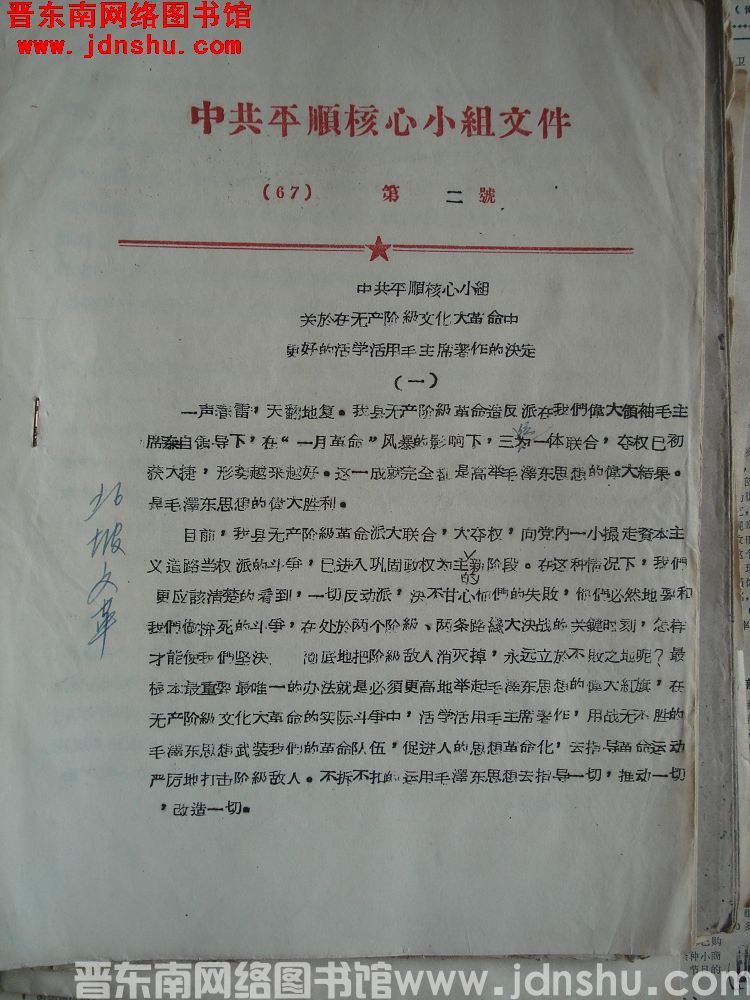 晋东南网络图书馆
www.jdnshu.com
中共平順核心小組文件
(67) 第 二 號
中共平順核心小組
关於在无产阶級文化大革命中
更好的活学活用毛主席著作的决定
(一)
一声春雷，天翻地复。我县无产阶級革命造反派在我們偉大領袖毛主
席亲自領导下，在“一月革命”风暴的影响下，三为一体联合，夺权已初
获大捷，形势越来越好。这一成就完全 是高举毛澤东思想的偉大結果。
是毛澤东思想的偉大胜利。
目前，我县无产阶級革命派大联合，大夺权，向党内一小撮走資本主
义道路当权派的斗爭，已进入巩固政权为主的新阶段。在这种情况下，我們
更应該清楚的看到，一切反动派，决不甘心他們的失敗，他們必然地要和
我們做拚死的斗爭，在处於两个阶級、两条路綫大决战的关鍵时刻，怎样
才能使我們坚决、 彻底地把阶級敌人消灭掉，永远立於不敗之地呢？最
根本最重要最唯一的办法就是必須更高地举起毛澤东思想的偉大紅旗，在
无产阶級文化大革命的实际斗爭中，活学活用毛主席著作，用战无不胜的
毛澤东思想武装我們的革命队伍，促进人的思想革命化，去指导革命运动
严厉地打击阶級敌人。不拆不扣的运用毛澤东思想去指导一切，推动一切
，改造一切。
北坡文革
晋东南网络图书馆www.jdnshu.com